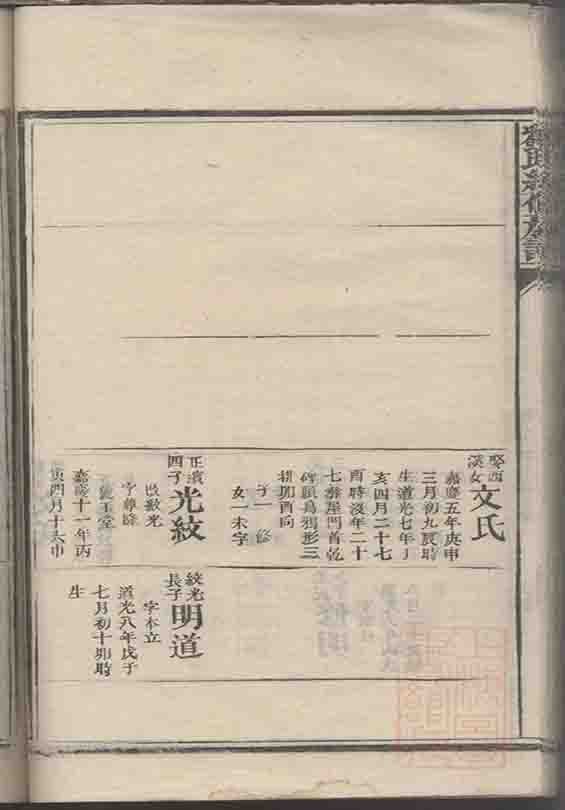 氏續修族譜
娶西
漢女
文氏
嘉慶五年庚申
三月初九辰時
生道光七年丁
亥四月二十七
酉時沒年二十
七葬屋門首乾
鴉形三
耕卯酉向
子一
女一未字
正濱
四子
光紋
啟光
字尊
玉堂
嘉慶十一年丙
寅四月十六申
紋光
長子
明道
字本立
道光八年戊子
七月初十卯時
生